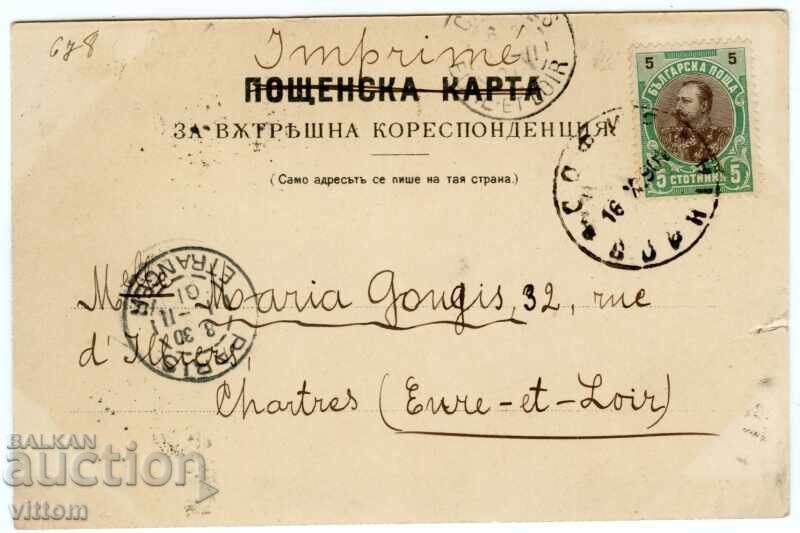 678
Imprimé
ПОЩЕНСКА КАРТА
ЗА ВѪТРѢШНА КОРЕСПОНДЕНЦИЯ
(Само адресътъ се пише на тая страна.)
5 5
БЪЛГАРСКА ПОЩА
5 СТОТИНКИ 5
СОФИЯ
16
ET-LOIR
PARIS ETRANGER
8 30
11
01
Melle Maria Gougis, 32, rue
d'Illiers,
Chartres (Eure-et-Loir)
BALKAN
auction
vittom